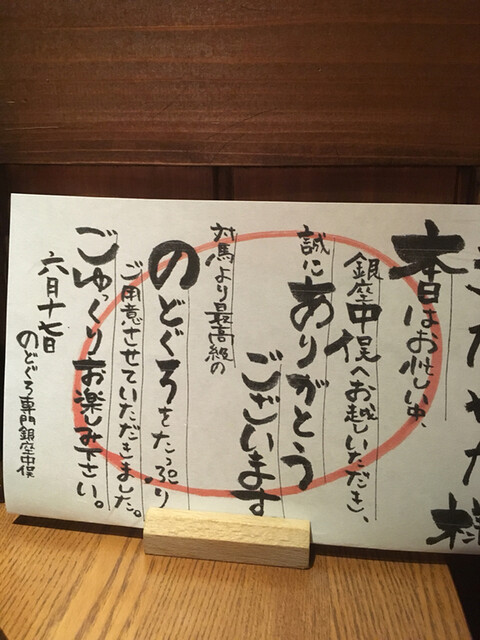 様
本日はお忙しい中、
銀座中俣へお越しいただき、
誠にありがとう
ございます
対馬より最高級の
のどぐろをたっぷり
ご用意させていただきました。
ごゆっくりお楽しみ下さい。
六月十七日
のどぐろ専門銀座中俣